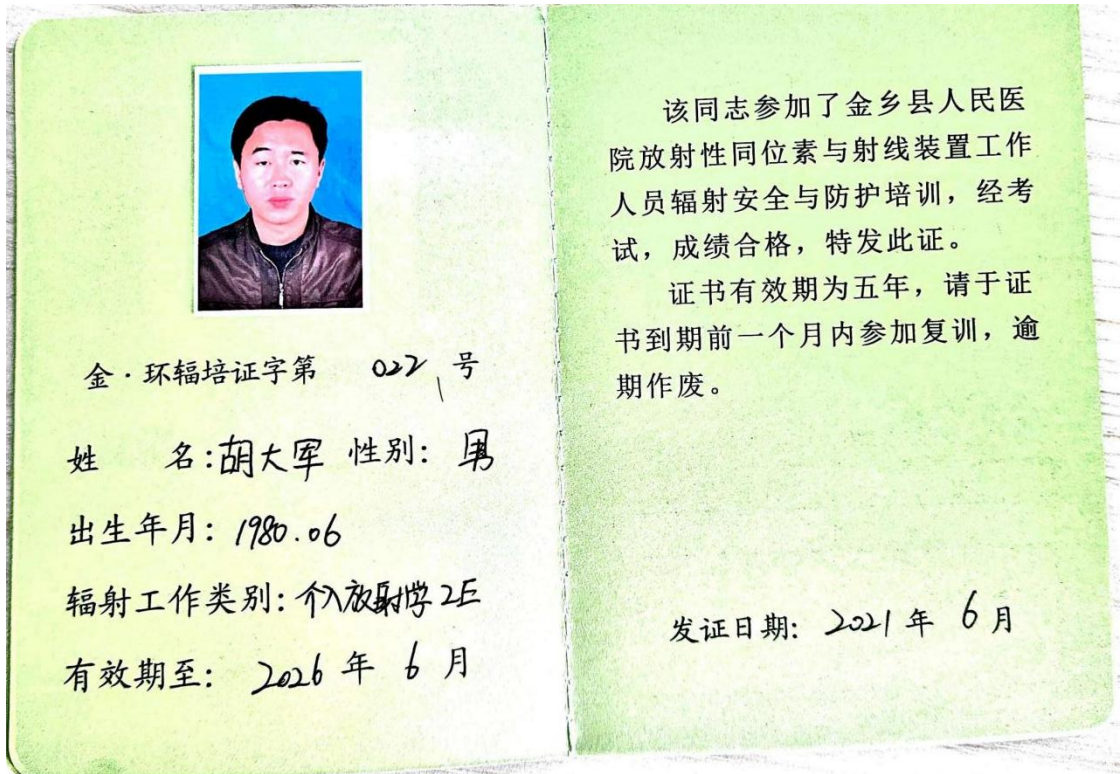 金·环辐培证字第 022 号
姓 名:胡大军 性别: 男
出生年月: 1980.06
辐射工作类别: 介入放射学 2E
有效期至: 2026 年 6 月
该同志参加了金乡县人民医
院放射性同位素与射线装置工作
人员辐射安全与防护培训，经考
试，成绩合格，特发此证。
证书有效期为五年，请于证
书到期前一个月内参加复训，逾
期作废。
发证日期: 2021 年 6 月